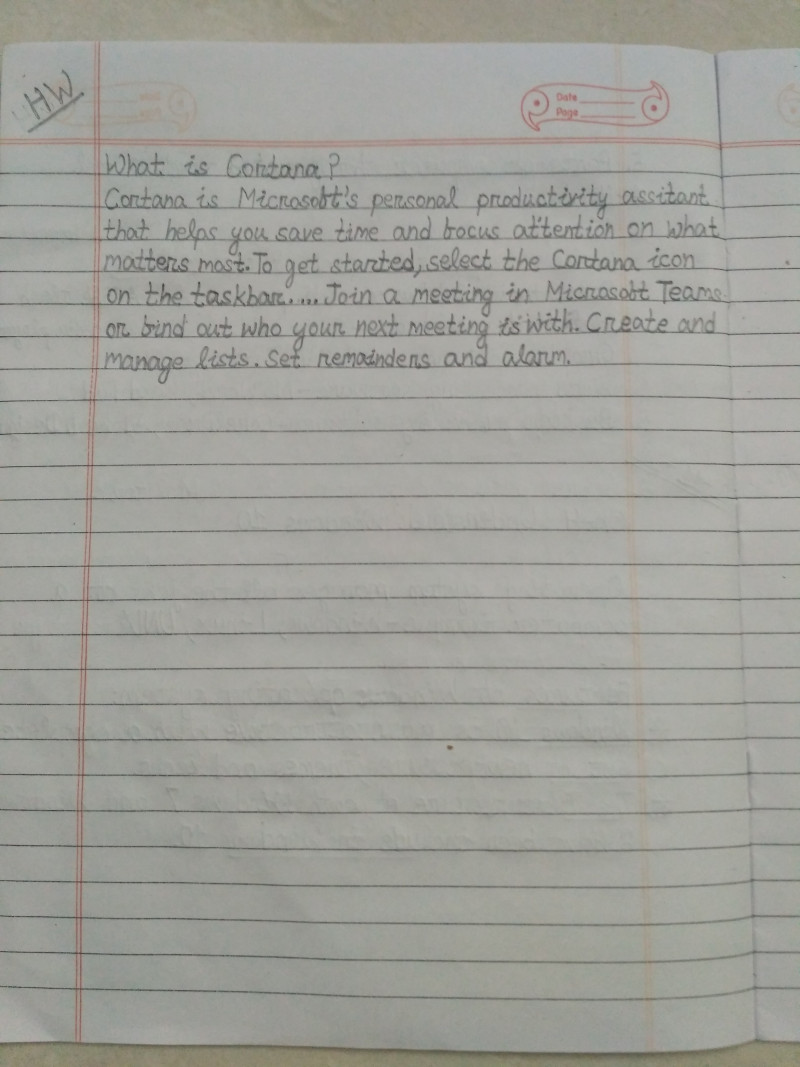 HW
Date
Page
What is Cortana?
Cortana is Microsoft's personal productivity assitant
that helps you save time and focus attention on what
matters most. To get started, select the Cortana icon
on the taskbar.... Join a meeting in Microsoft Teams
or find out who your next meeting is with. Create and
manage lists. Set remainders and alarm.